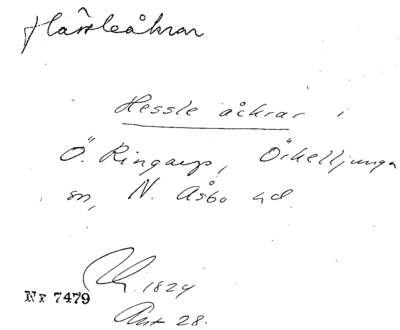 Hässleåkrar
Hessle åckrar i
Ö. Ringarp, Örkelljunga
sn, N. Åsbo hd
1824
Nr 7479
Akt 28.